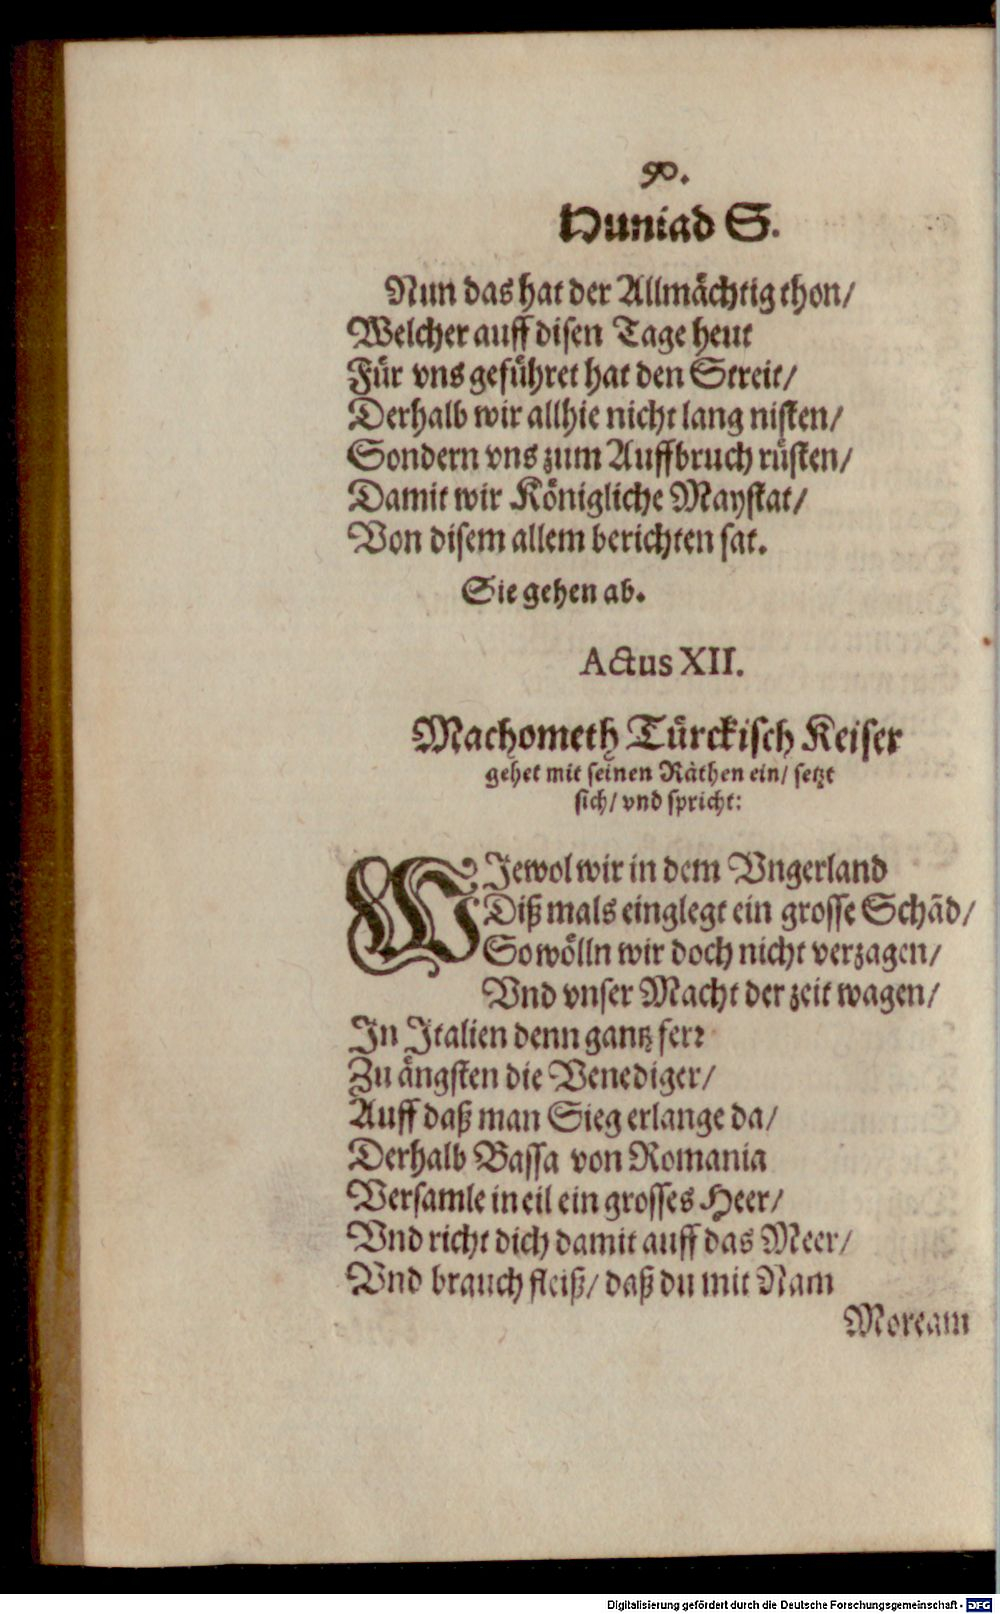 90.
Huniad S.
Nun das hat der Allmächtig thon/
Welcher auff disen Tage heut
Für vns geführet hat den Streit/
Derhalb wir allhie nicht lang nisten/
Sondern vns zum Auffbruch rüsten/
Damit wir Königliche Maystat/
Von disem allem berichten sat.
Sie gehen ab.
Actus XII.
Machometh Türckisch Keiser
gehet mit seinen Räthen ein/ setzt
sich/ vnd spricht:
WIewol wir in dem Vngerland
Diß mals einglegt ein grosse Schãd/
So wölln wir doch nicht verzagen/
Vnd vnser Macht der zeit wagen/
In Italien denn gantz ferr
Zu ängsten die Venediger/
Auff daß man Sieg erlange da/
Derhalb Bassa von Romania
Versamle in eil ein grosses Heer/
Vnd richt dich damit auff das Meer/
Vnd brauch fleiß/ daß du mit Nam
Moream
Digitalisierung gefördert durch die Deutsche Forschungsgemeinschaft - DFG